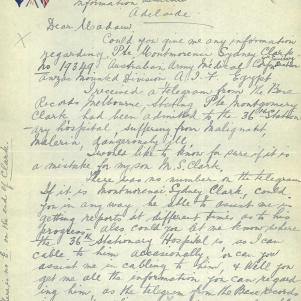 Information Bureau
Adelaide
Dear Madam
Could you give me any information
regarding Pte Montmorensi Sydney Clark
No 19349 Australian Army Medical Corps
Anzac Mounted Division A.I.F. Egypt
I received a telegram from The Base
Records Melbourne, Stating Pte Montgomery
Clark had been admitted to the 36th Station
-ary hospital, suffering from Malignant
Malaria, dangerously ill,
I would like to know for sure if it is
a mistake for my son M. S. Clark.
There was no number on the telegram
If it is Montmorensi Sydney Clark, could
you in any way be able to assist me in
getting reports at different times as to his
progress, also could you let me know where
the 36th Stationary Hospital is, so I can
cable to him occasionally, or can you
assist me in cabling to him, & Will you
get me all the information you can regard
ing him, as the telegram from the Base Records
There is no E on the end of Clark.